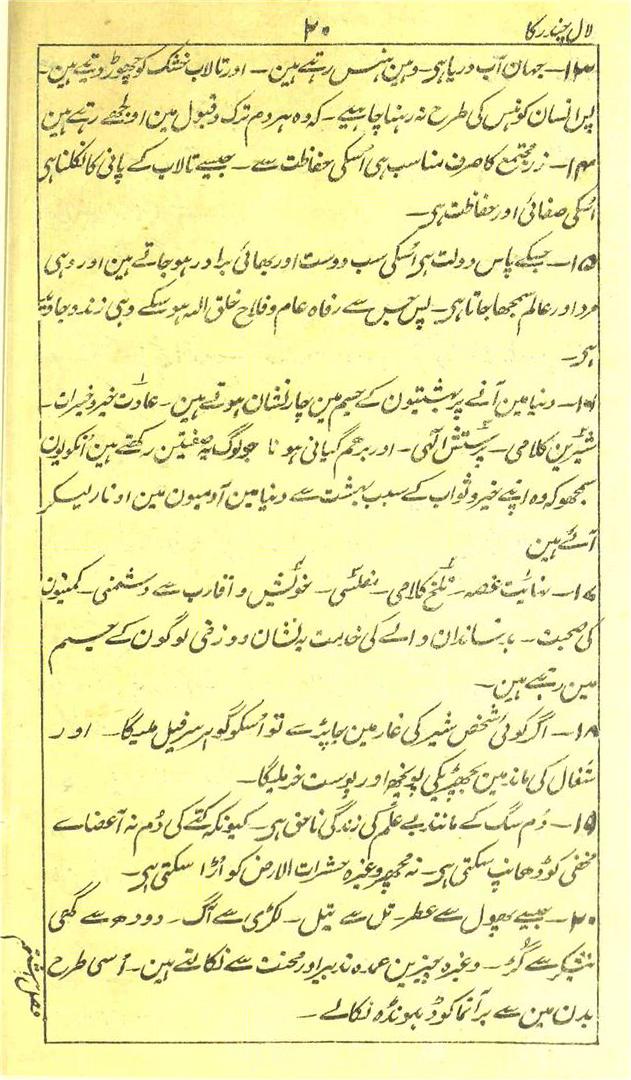 لال چندرکا
۲۰
۱۳- جہان آب دریا ہی- وہین ہنس رہتے ہین- اور تالاب خشک کو چھوڑ دیتے ہین-
پس انسان کو ہنس کی طرح نہ رہنا چاہیے- کہ وہ ہر دم ترک و قبول مین اولجھے رہتے ہین
۱۴- زر مجتمع کا صرف مناسب ہی اُسکی حفاظت ہے- جیسے تالاب کے پانی کا نکلنا ہی
اُسکی صفائی اور حفاظت ہی-
۱۵- جسکے پاس دولت ہی اُسکی سب دوست اور بھائی برادر ہو جاتے ہین اور وہی
مرد اور عالم سمجھا جاتا ہی- پس جس سے رفاہ عام و فلاح خلق اللہ ہو سکے وہی زندہ جاوید
ہی-
۱۶- دنیا مین آنے پر بہشتیون کے جسم مین چار نشان ہوتے ہین- عادت خیر و خیرات-
شیرین کلامی- پرستش الٰہی- اور برہم گیانی ہونا جو لوگ یہ صفیتن رکھتے ہین اُنکو یون
سمجھو کہ وہ اپنے خیر و ثواب کے سبب بہشت سے دنیا مین آدمیون مین اوتار لیکر
آئے ہین
۱۷- نہایت غصہ- تلخ کلامی- مفلسی- خویش و اقارب سے دشمنی- کمینون
کی صحبت- بد خاندان والے کی خدمت یہ نشان دوزخی لوگون کے جسم
مین رہتے ہین-
۱۸- اگر کوئی شخص شیر کی غار مین جا پڑے تو اُسکو گوہر سر فیل ملیگا- اور
شغال کی ماند مین بچھڑیکی پونچھ اور پوست خر ملیگا-
۱۹- دُم سگ کے مانند بے علم کی زندگی ناحق ہی- کیونکہ کتے کی دُم نہ اعضاے
مخفی کو ڈھانپ سکتی ہی- نہ مچھر وغیرہ حشرات الارض کو اُڑا سکتی ہی-
۲۰- جیسے پھول سے عطر- تل سے تیل- لکڑی سے آگ- دودھ سے گھی
نیشکر سے گُڑ- وغیرہ چیزین عمدہ تدبیر اور محنت سے نکالتے ہین- اُسی طرح
بدن مین سے پر آتما کو ڈھونڈہ نکالے-
فصل ہشتم